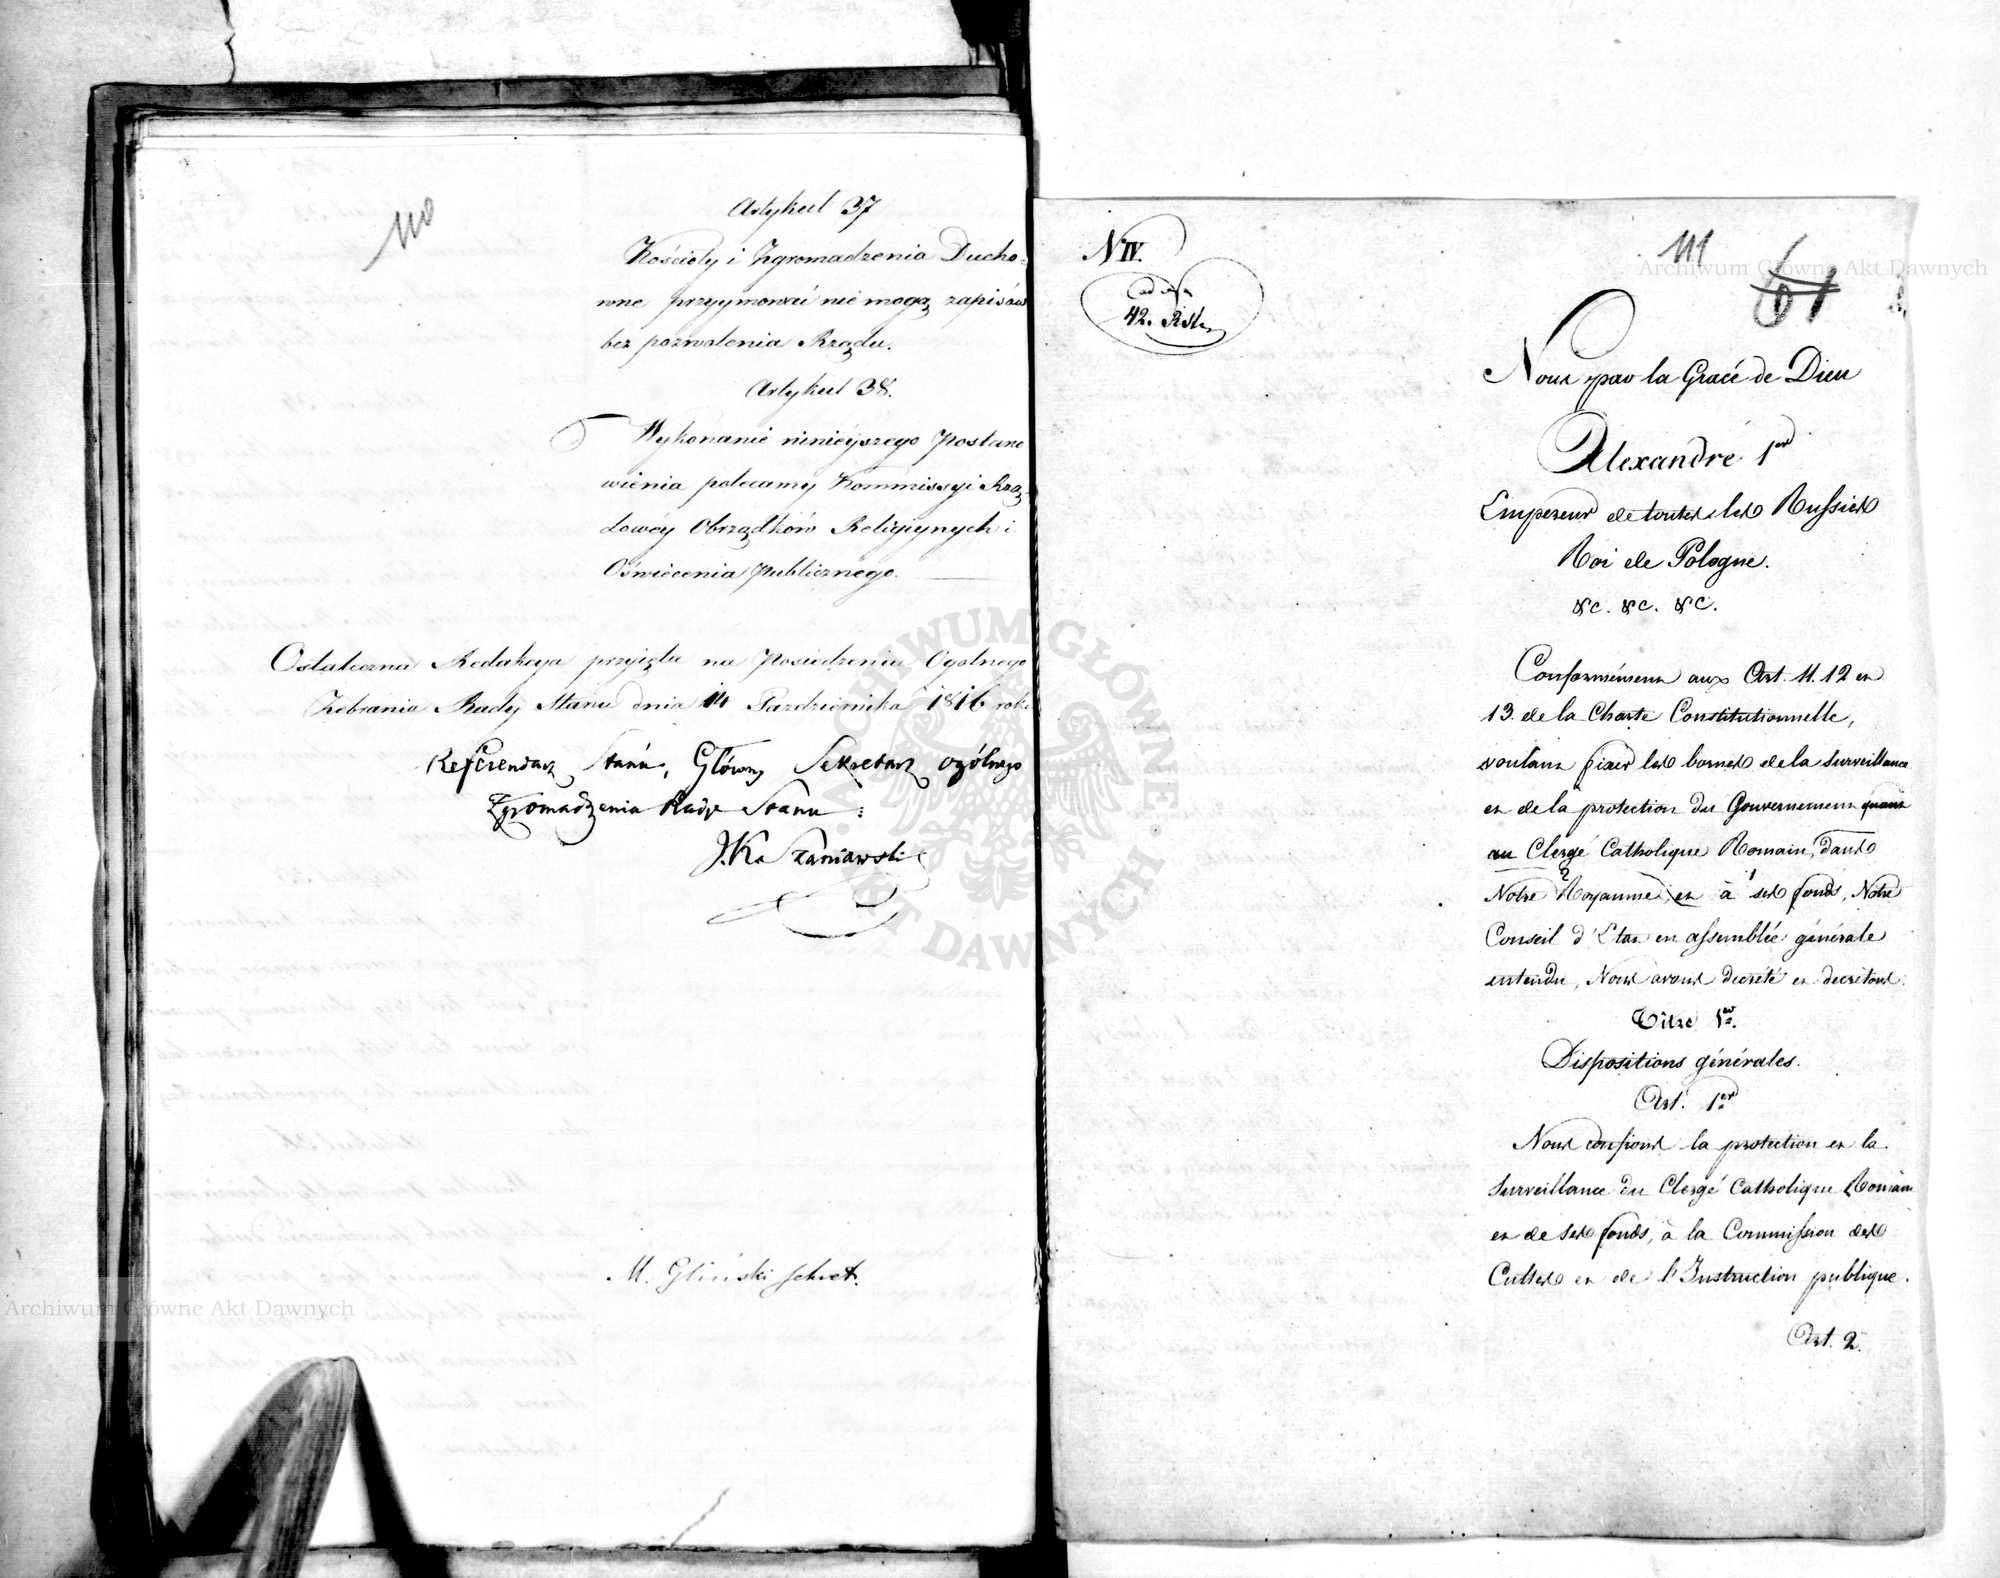 110
Artykuł 37
Kościoły i Zgromadzenia Ducho-
wne przyymować nie mogą zapisów
bez pozwolenia Rządu.
Artykuł 38.
Wykonanie ninieyszego Postano
wienia polecamy Kommissyi Rzą-
dowéy Obrządków Religiynych i
Oświecenia Publicznego.
Ostateczna Redakcya przyięta na Posiedzeniu Ogolnego
Zebrania Rady Stanu dnia 14 Pazdziernika 1816 roku
Referendarz Stanu, Główny Sekretarz ogólnego
Zgromadzenia Rady Stanu:
J. K. Szaniawski
M. Gliński Sekret.
111
61
N IV.
ad
42.
Nous par la Grace de Dieu
Alexandre 1er
Empereur de toutes les Russies
Roi de Pologne.
&c. &c. &c.
Conformément aux Art. 11. 12 et
13. de la Charte Constitutionnelle,
voulant fixer les bornes de la surveillance
et de la protection du Gouvernement quant
au Clergé Catholique Romain, dans
Notre Royaume, et à ses fonds, Notre
Conseil d'Etat en assemblée générale
entendu, Nous avons decrété et decretons:
Titre 1er.
Dispositions générales.
Art. 1er
Nous confions la protection et la
surveillance du Clergé Catholique Romain
et de ses fonds, à la Commission des
Cultes et de l'Instruction publique.
Art. 2.
Archiwum Główne Akt Dawnych
Archiwum Główne Akt Dawnych
ARCHIWUM GŁÓWNE AKT DAWNYCH